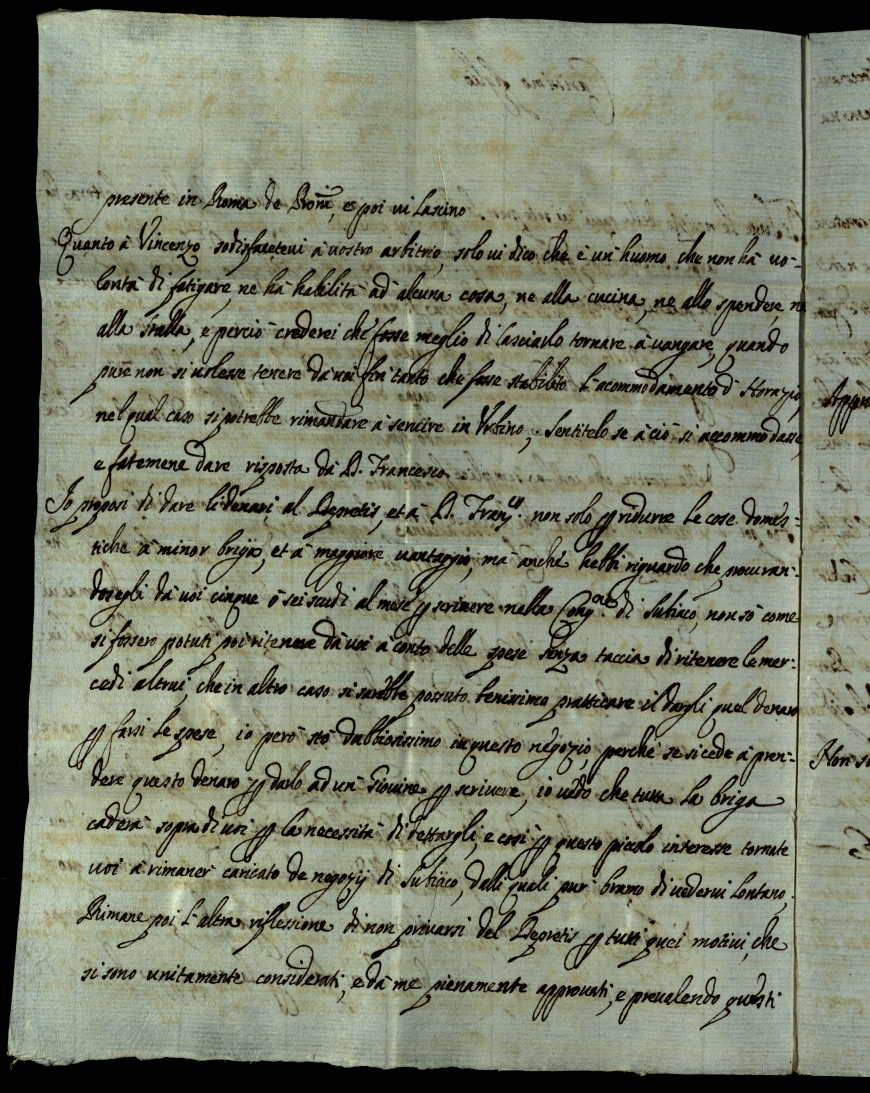 presente in Roma de Prõni, e poi vi lascino.
Quanto à Vincenzo sodisfacetevi à vostro arbitrio, solo vi dico che è un huomo che non hà vo-
lontà di fatigare, ne hà habilità ad alcuna cosa, ne alla cucina, ne allo spendere, ne
alla stalla, e perciò crederei che fosse meglio di lasciarlo tornare à vangare, quando
pure non si volesse tenere da voi fin tanto che fosse stabilito l'acommodamento d'Horazio,
nel qual caso si potrebbe rimandare à servire in Urbino; Sentitelo se à ciò si accommodasse,
e fatemene dare risposta dà D. Francesco
Io proposi di dare li denari al Depretis, et à D. Franc.º non solo ꝑ ridurre le cose domes-
tiche à minor briga, et à maggiore vantaggio, mà anche hebbi riguardo che procuran-
dosegli dà voi cinque ò sei scudi al mese ꝑ scrivere nella Cong.ne di Subiaco, non sò come
si fossero potuti poi ritenere dà voi à conto delle spese senza taccia di ritenere le mer-
cedi altrui, che in altro caso si sarebbe possuto benissimo pratticare il dargli quel denaro
ꝑ farsi le spese, io però stò dubbiosissimo in questo negozio, perche se si cede à pren-
dere questo denaro ꝑ darlo ad un Giovine ꝑ scrivere, io vedo che tutta la briga
caderà sopra di voi ꝑ la necessità di dettargli, e così ꝑ questo piccolo interesse tornate
voi à rimaner caricato de negozij di Subiaco, dalli quali pur bramo di vedervi lontano.
Rimane poi l'altra riflessione di non privarsi del Depretis ꝑ tutti quei motivi, che
si sono unitamente considerati, e dà me pienamente approvati, e prevalendo questi
Non